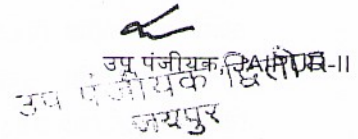 उप पंजीयक, JAIPUR-II
उप पंजीयक द्वितीय
जयपुर